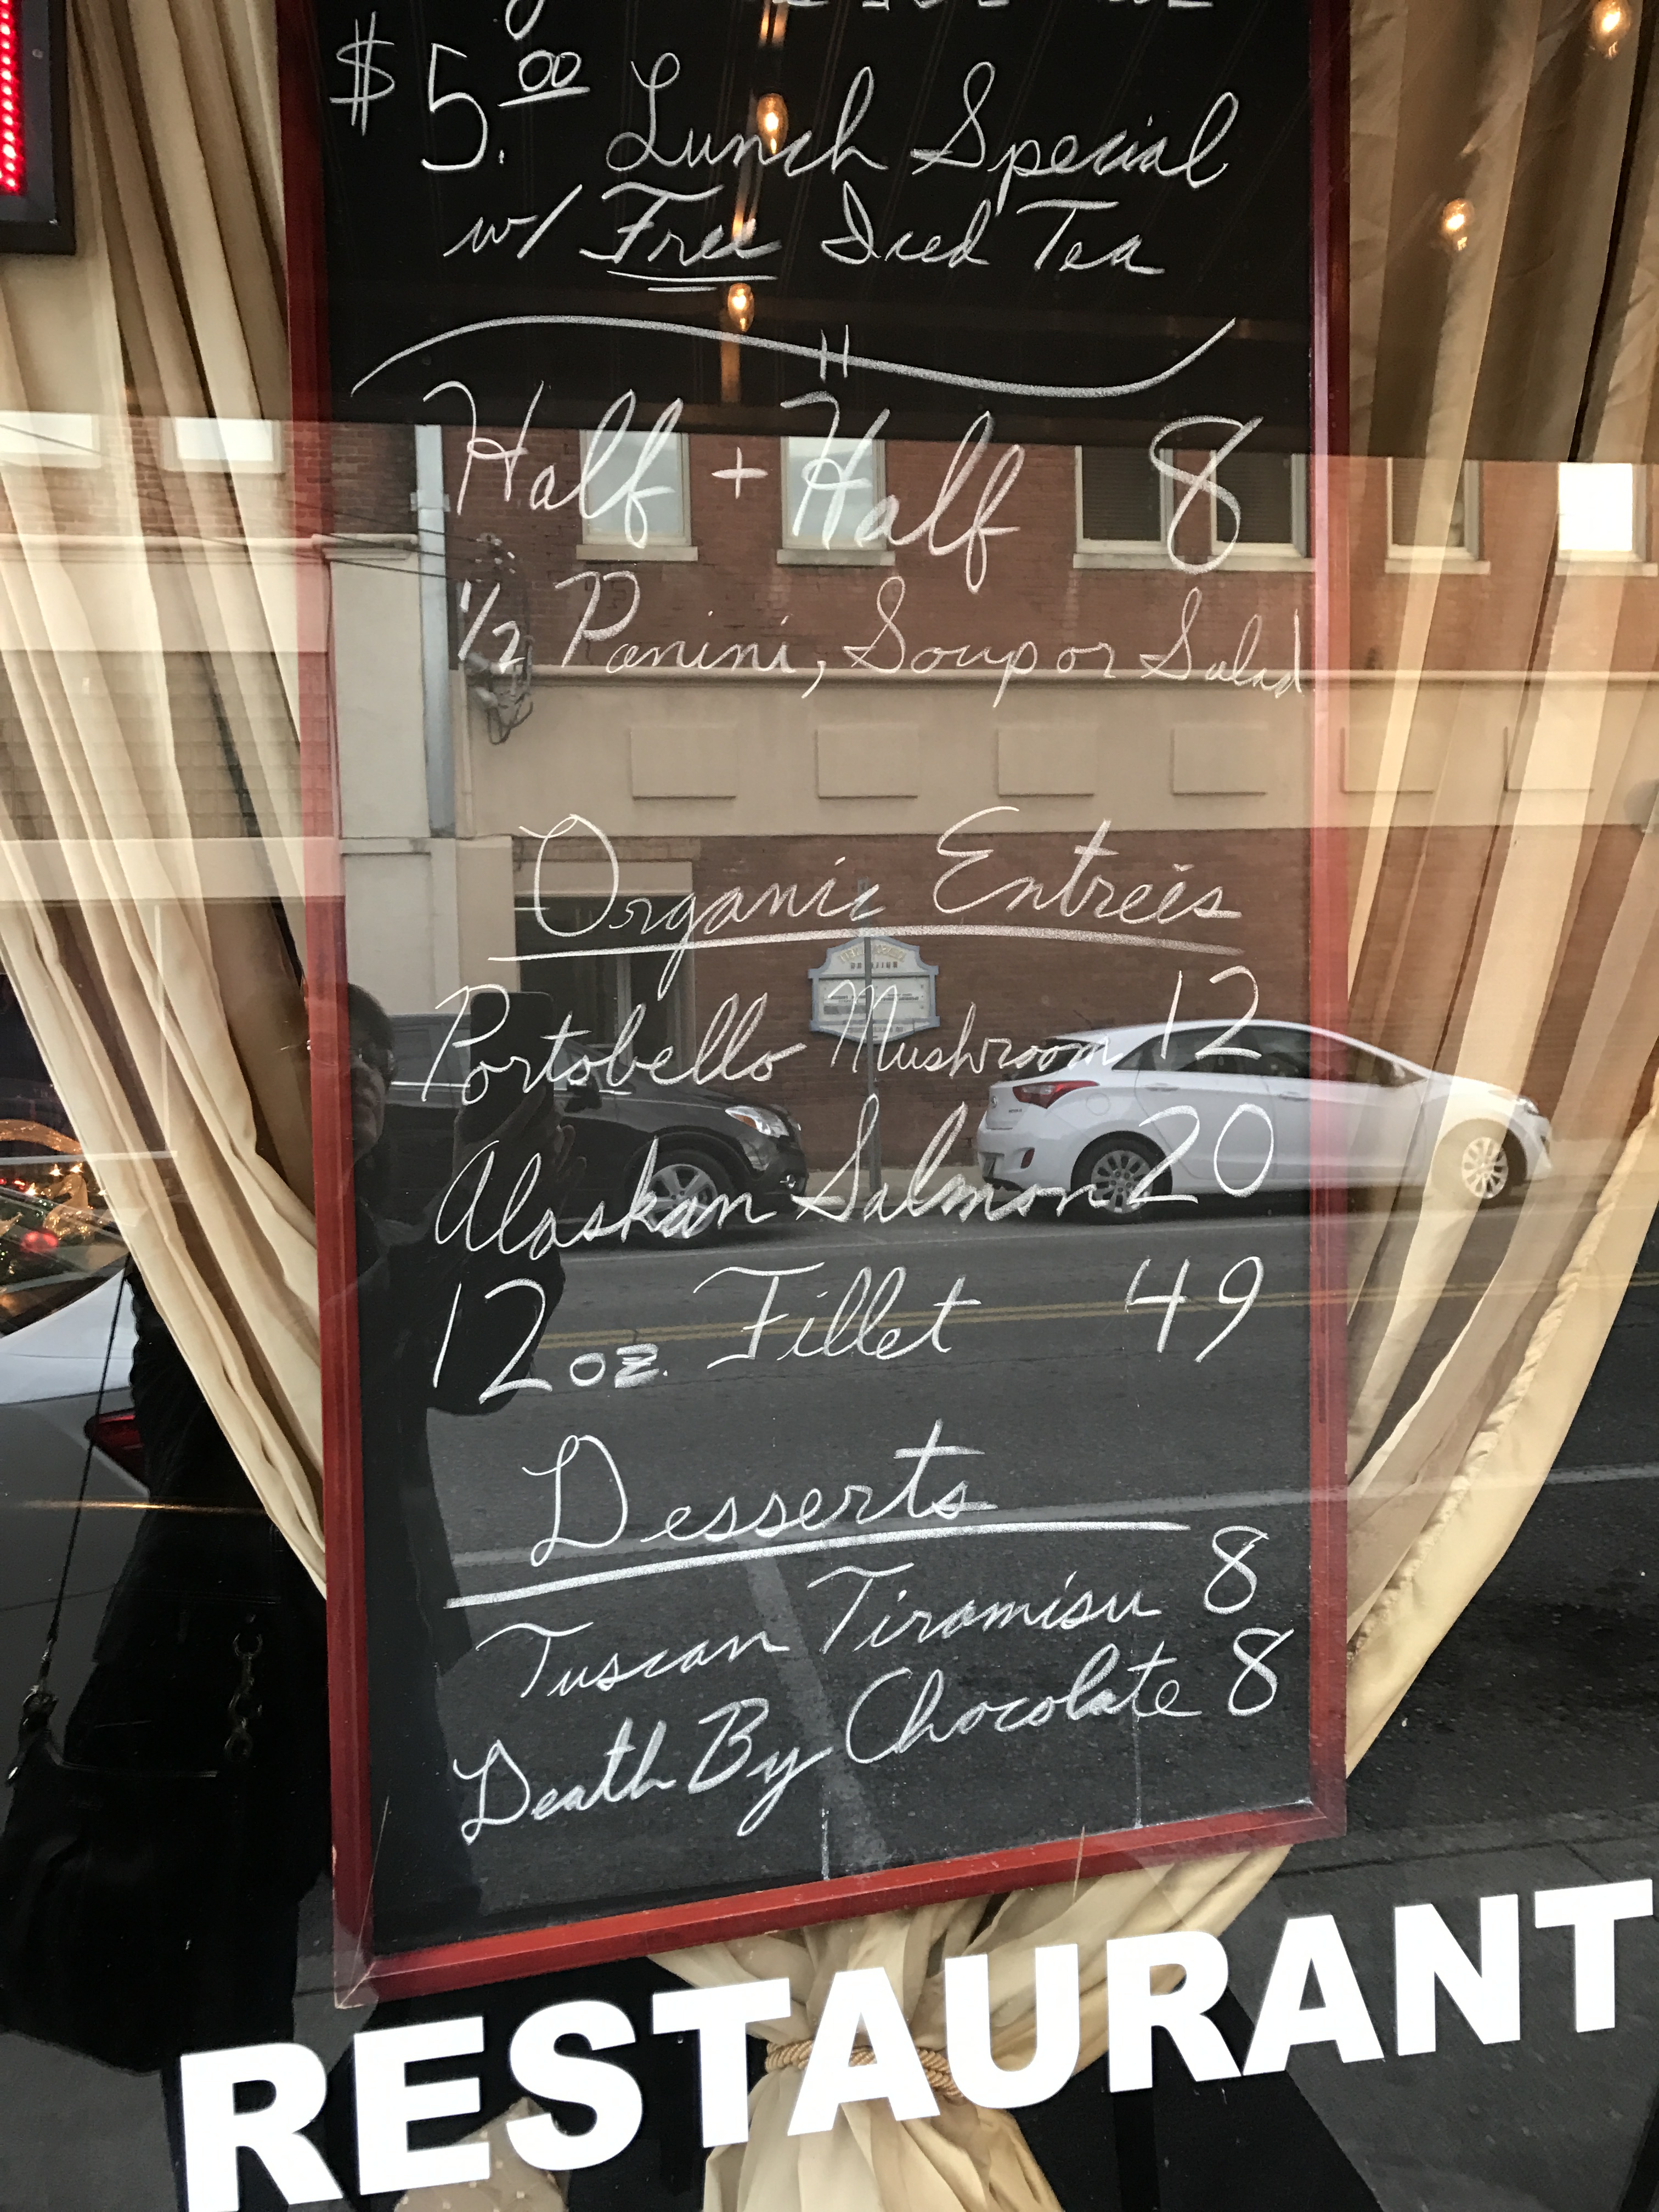 $5.00 Lunch Special
w/ Free Iced Tea
Half + Half 8
1/2 Panini, Soup or Salad
Organic Entreés
Portobello Mushroom 12
Alaskan Salmon 20
12 oz. Fillet 49
Desserts
Tuscan Tiramisu 8
Death By Chocolate 8
RESTAURANT